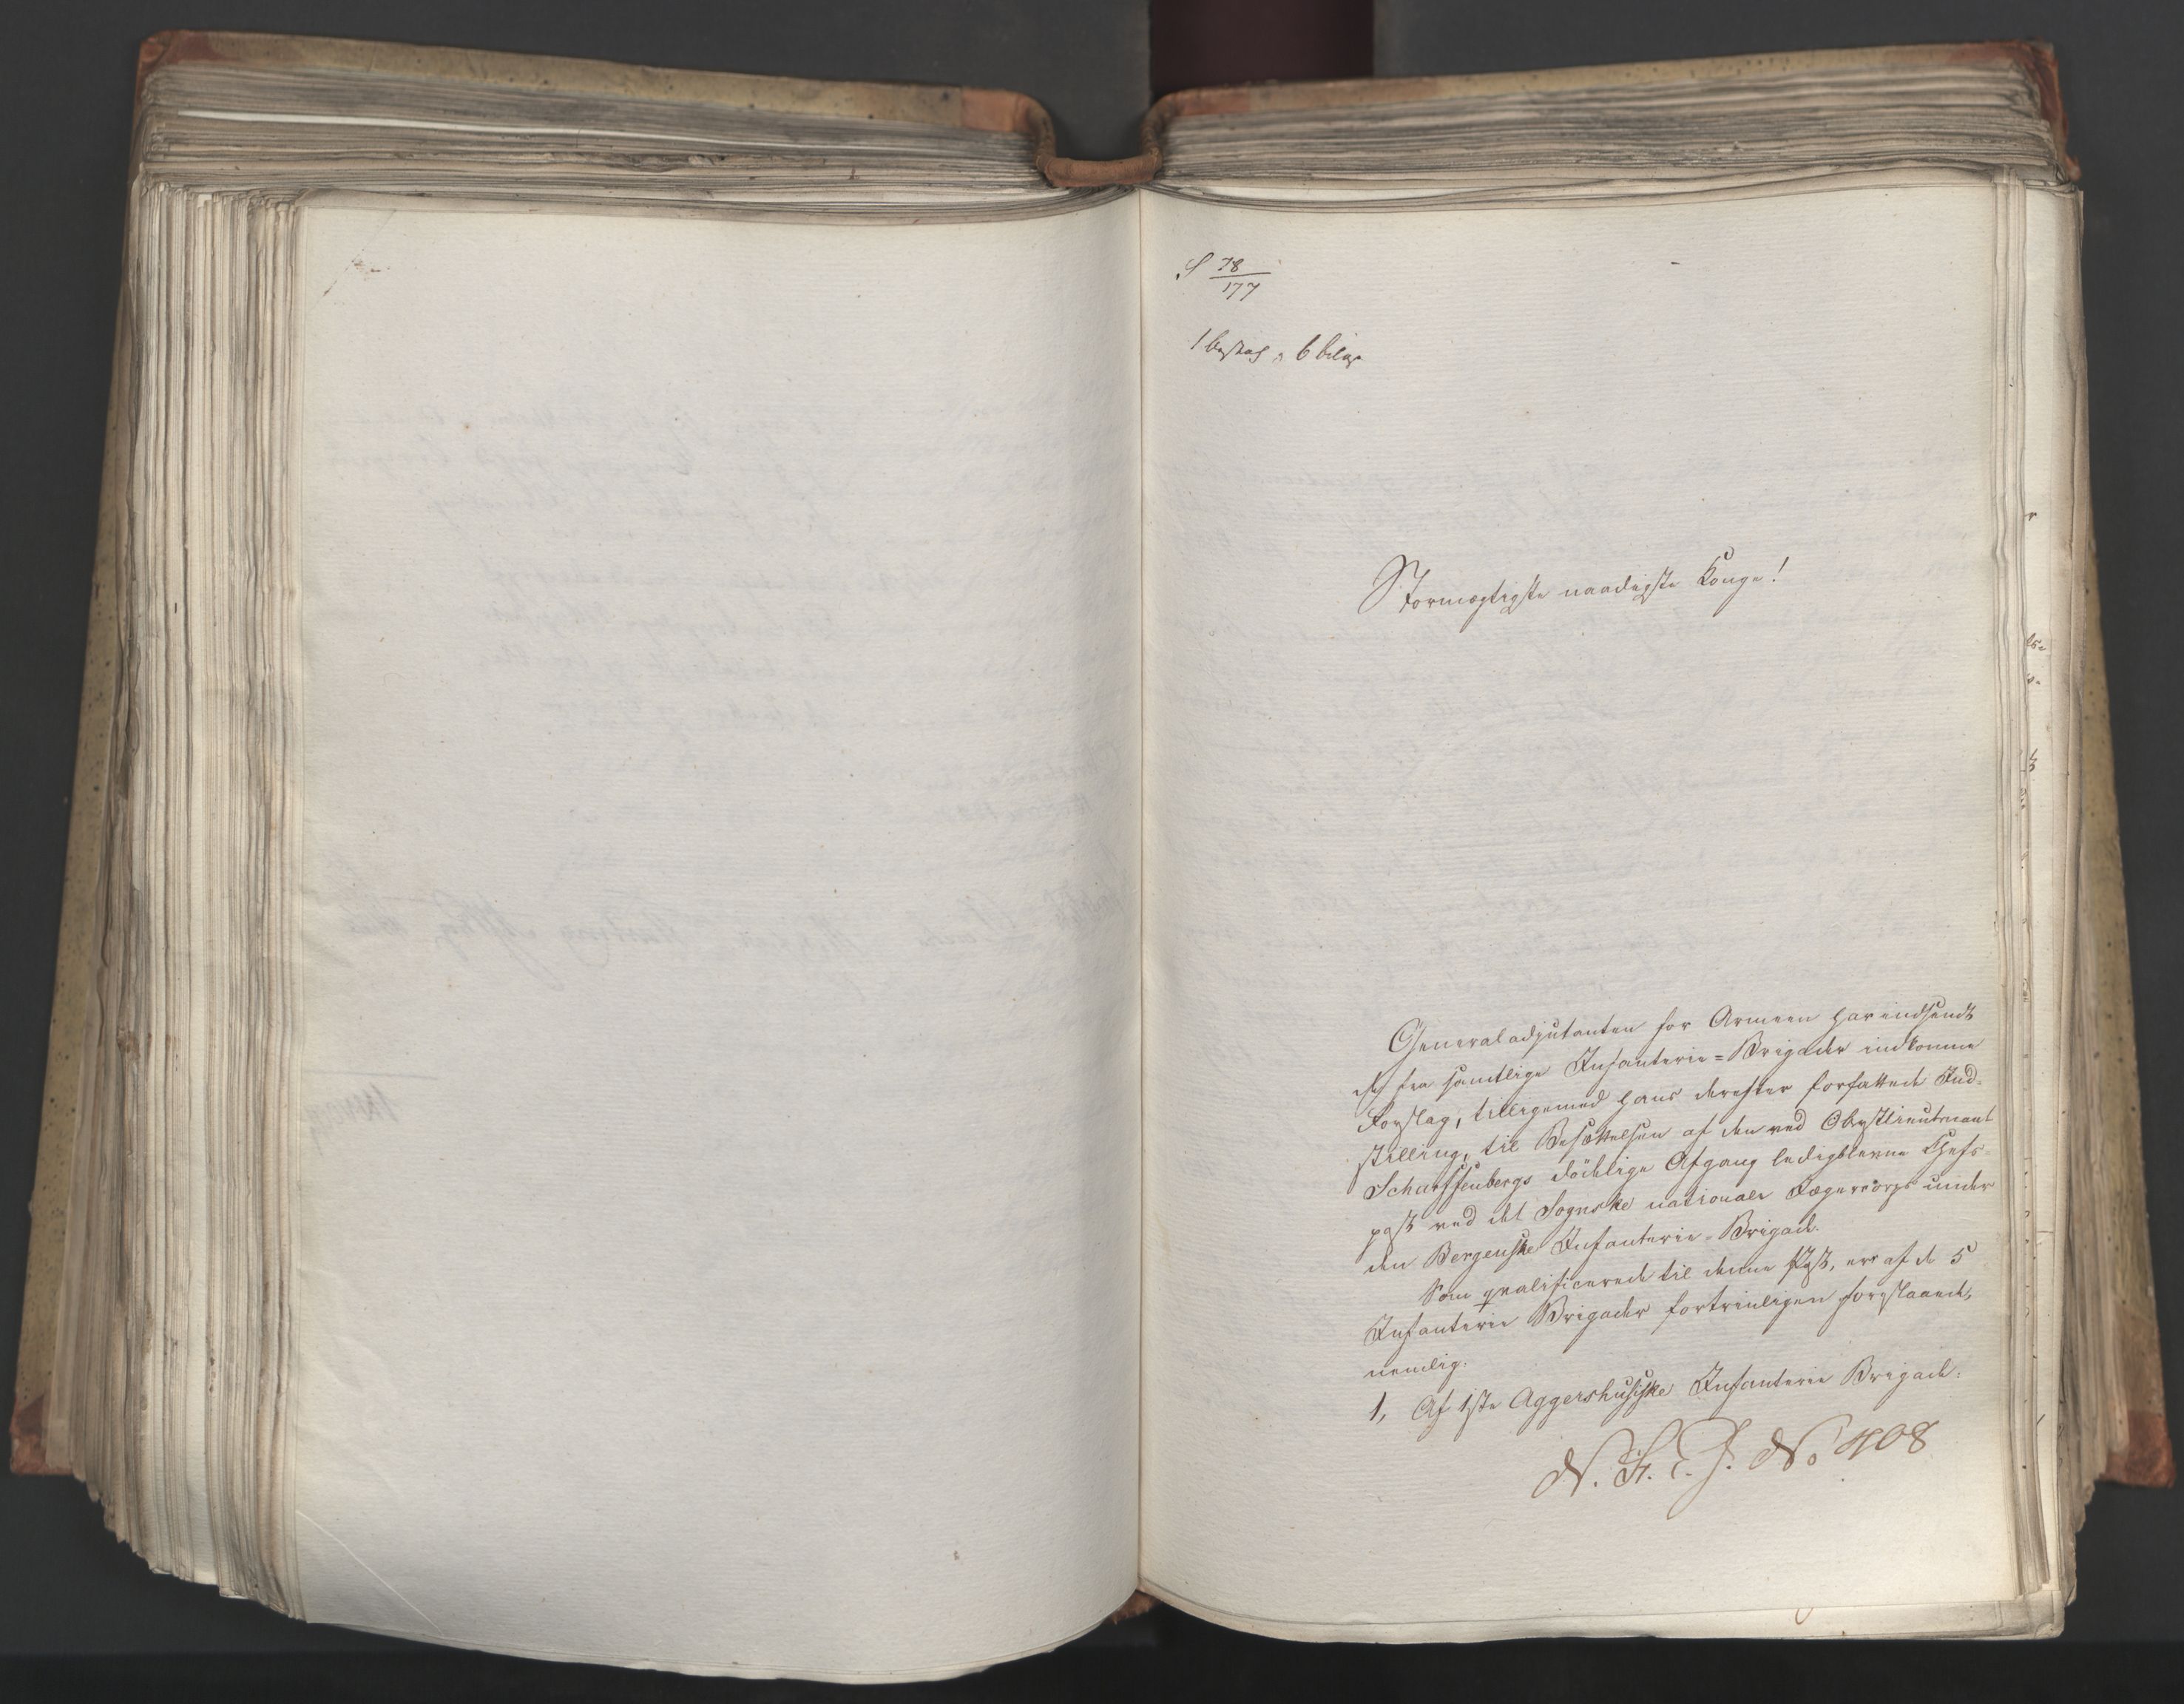 S 78/177
1 Omslag, 6 bilag
Stormægtigste naadigste Konge!
Generaladjutanten for Armeen har indsendt
de fra samtlige Infanterie=Brigader indkomne
Forslag, tilligemed hans derefter forfattede Ind-
stilling, til Besættelsen af den ved Obrstlieutenant
Scharffenbergs dödelige Afgang ledigblevne Chefs-
post ved det Sognske nationale Jægercorps under
den Bergenske Infanterie-Brigade.
Som qvalificerede til denne Post, ere af de 5
Infanterie Brigader fortrinligen foreslaaede,
nemlig:
1, Af 1ste Aggershusiske Infanterie Brigade:
N. F. E. J. No 408